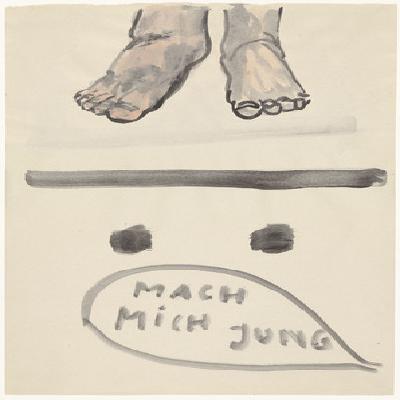 MACH
MiCH JUNG